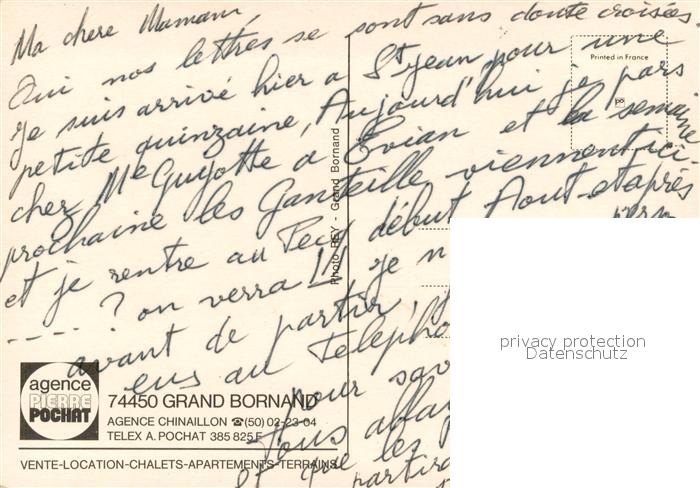 Ma chere Maman,
Oui nos lettres se sont sans doute croisées.
Je suis arrivé hier a St Jean pour une
petite quinzaine, Aujourd'hui je pars
cher Me Guyotte a Evian et la semaine
prochaine les Ganteille viennent ici
et je rentre au Pecq début Aout et après
----? on verra !! je n
avant de partir,
eus au Telepho
pour sav
Vous alla
et que les
partir
Printed in France
Photo REY - Grand Bornand
privacy protection
Datenschutz
agence
PIERRE
POCHAT
74450 GRAND BORNAND
AGENCE CHINAILLON ☎(50) 02-23-04
TELEX A. POCHAT 385 825 F
VENTE-LOCATION-CHALETS-APARTEMENTS-TERRAINS